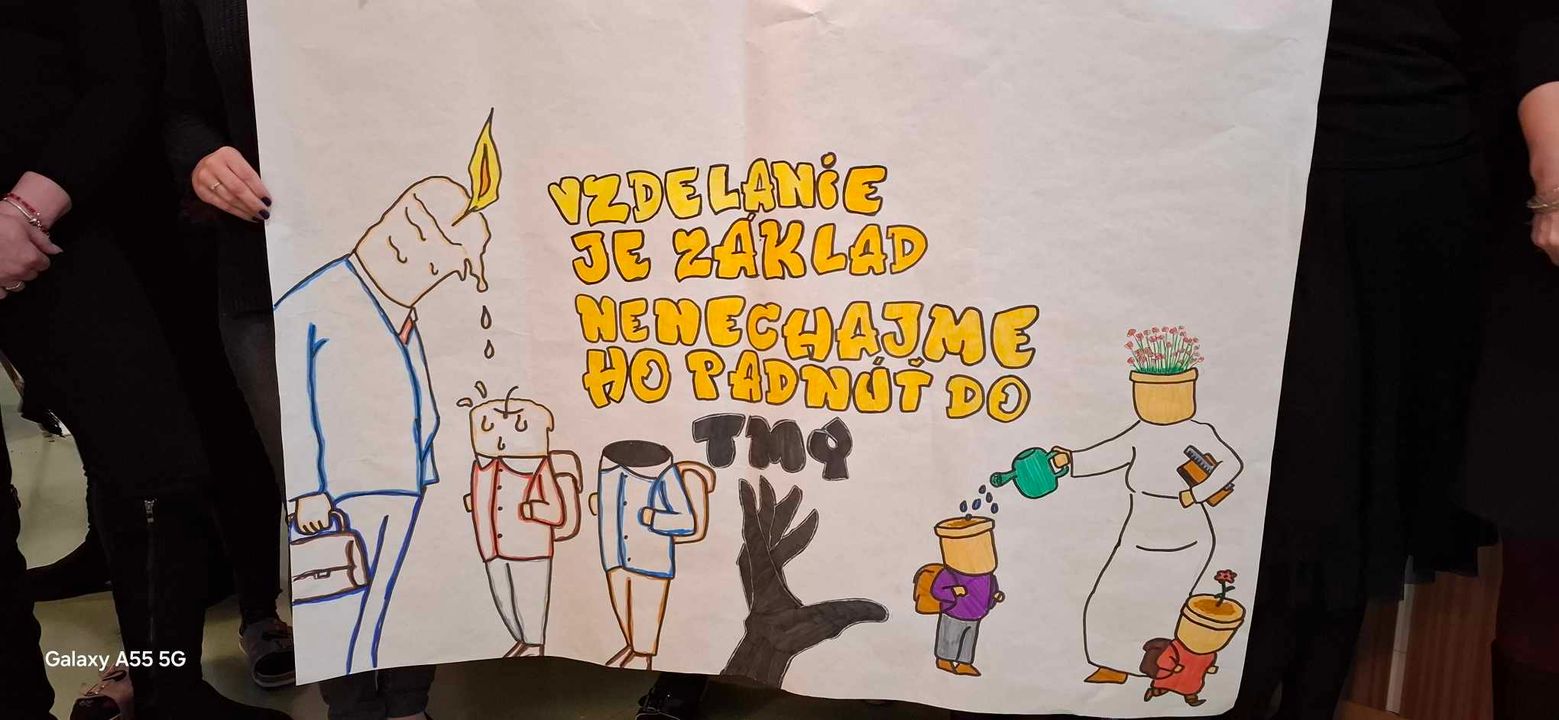 VZDELANiE
JE ZÁKLAD
NENECHAJME
HO PADNÚŤ DO
TMY
Galaxy A55 5G